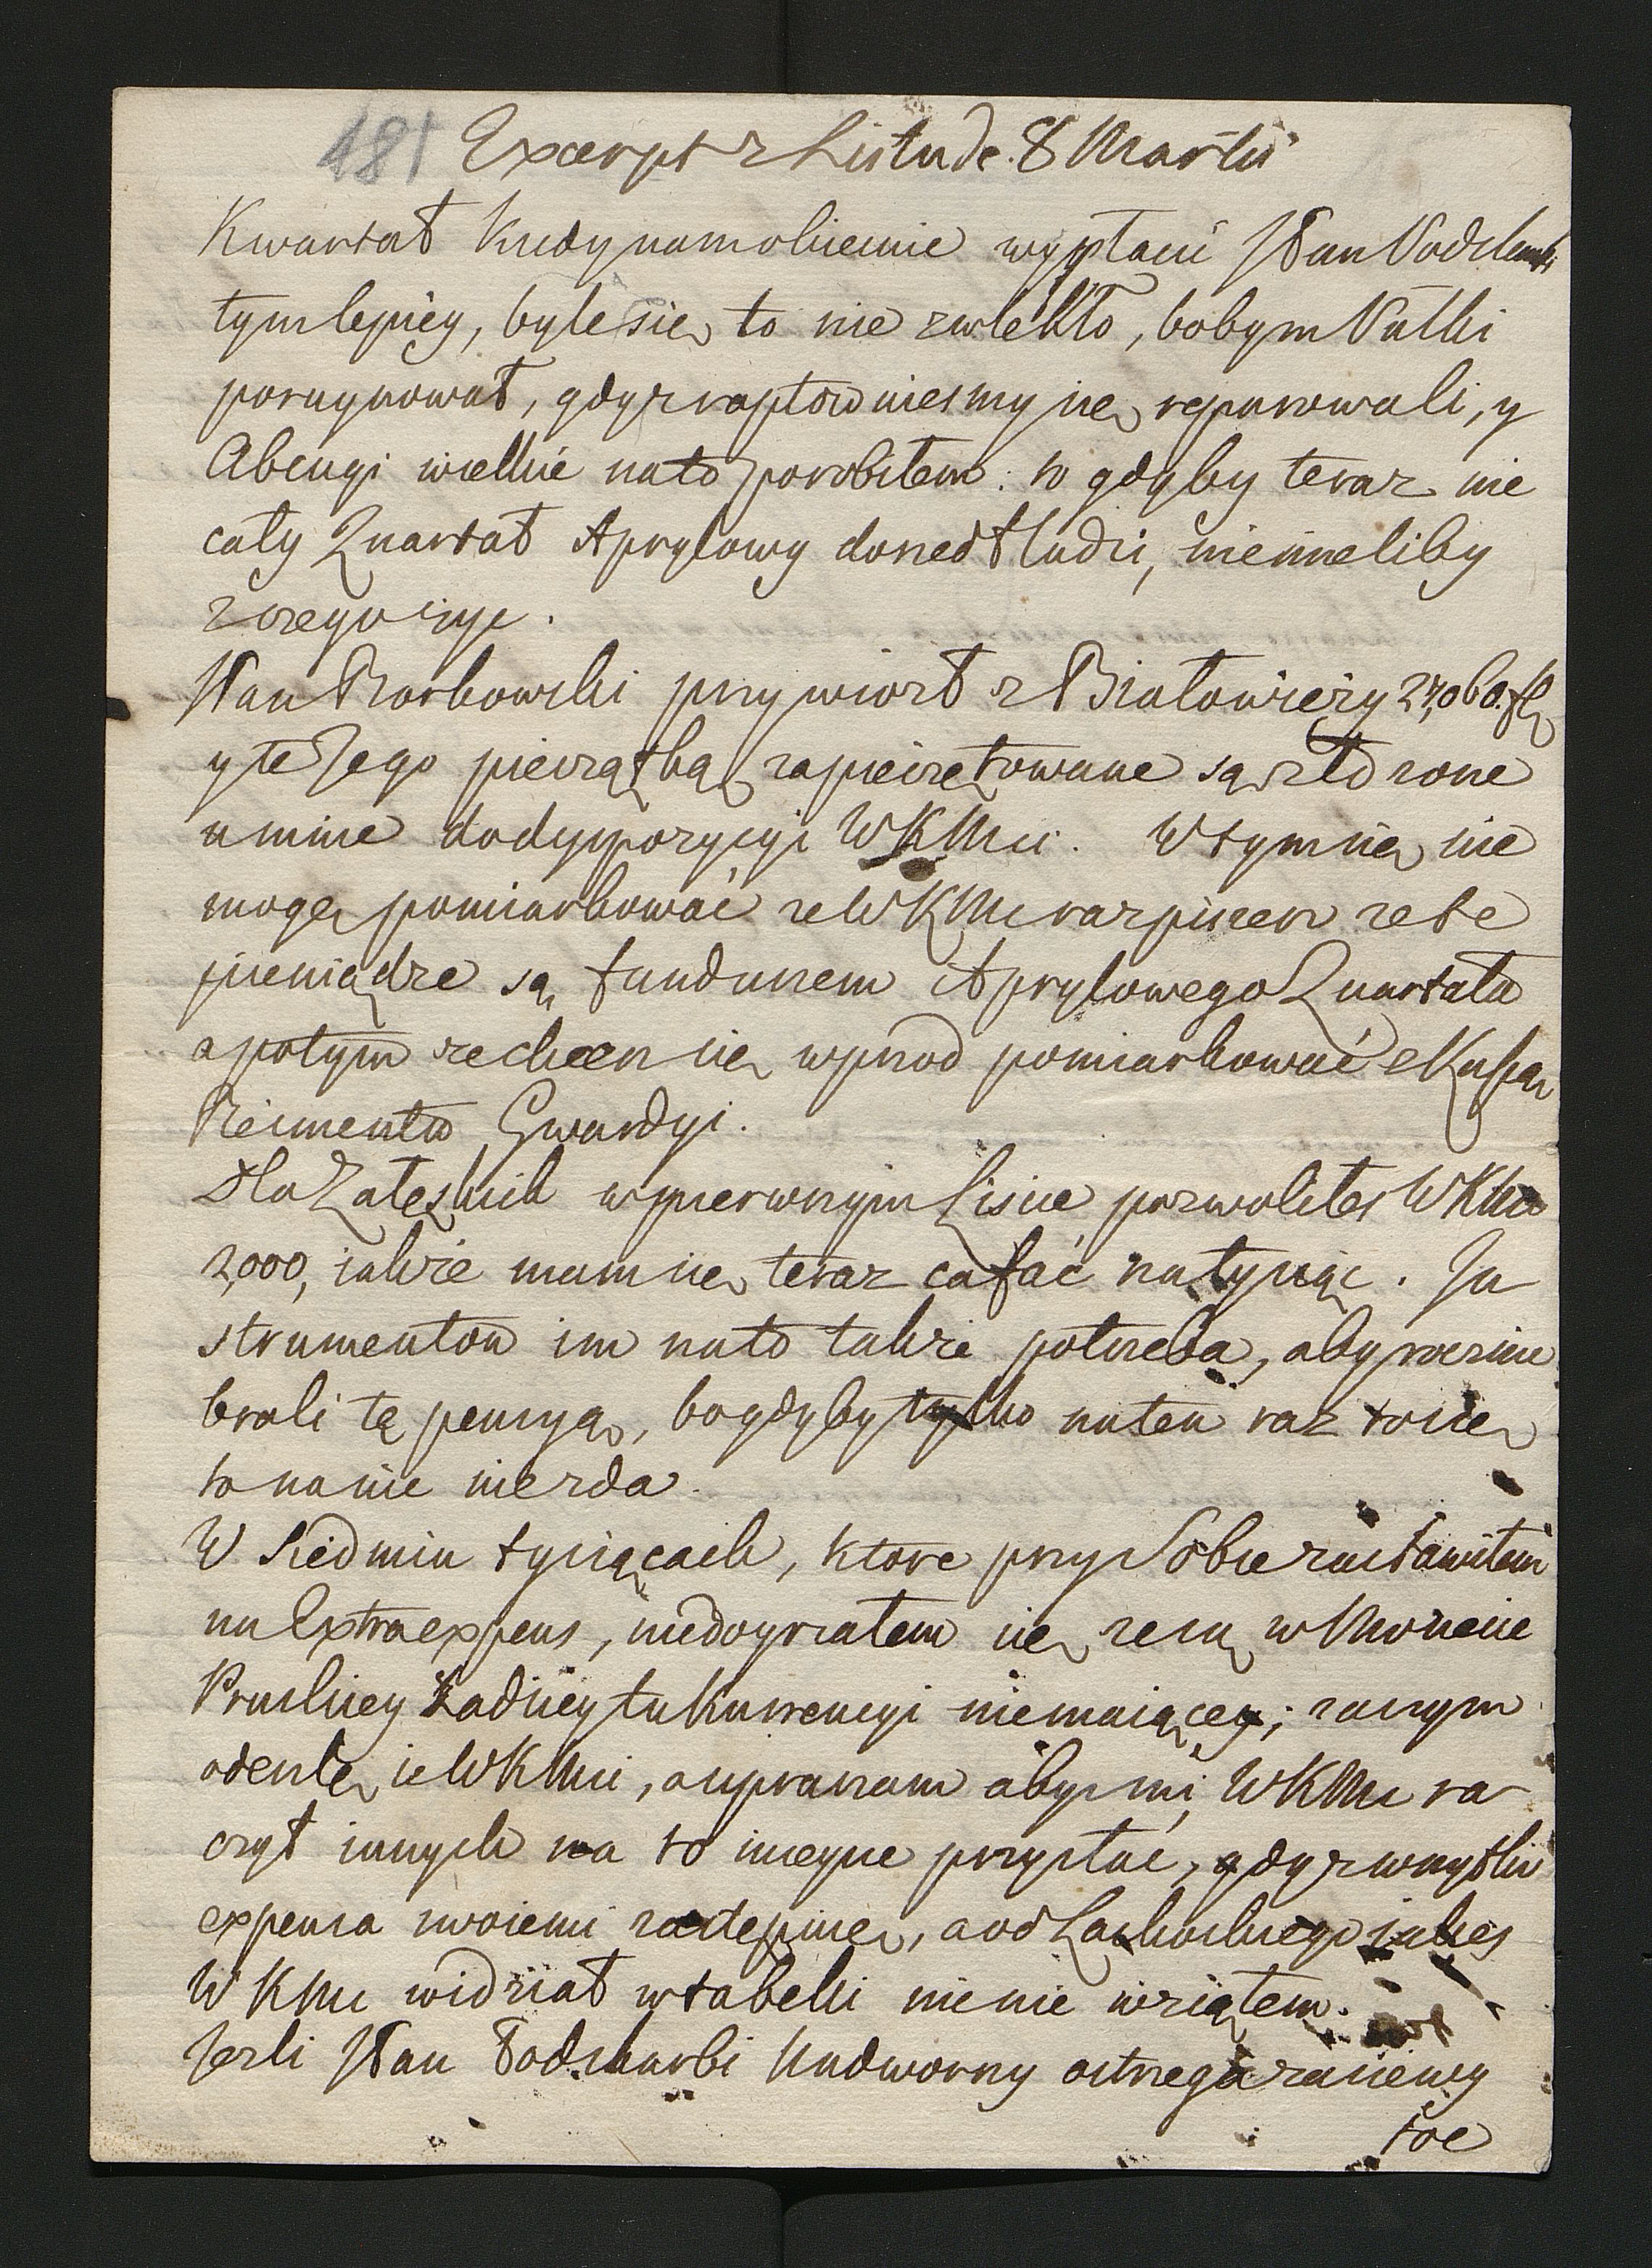 481 Excerpt z Listu de. 8 Martii
Kwartał kiedy namolicznie wypłaci JPan Podskarbi
tym lepiey, byle się to nie zwlekło, bobym Pułki
poruynował, gdyż raptownieśmy ie reparowali, y
Abcugi wielkie na to porobiłem: to gdyby teraz nie
cały Quartał Aprylowy doszedł ludzi, nie mieliby
z czego żyć.
JPan Borkowski przywiozł z Białowieży 27,060. fl
y te Jego pieczątką zapieczętowane są złożone
u mnie do dyspozycyi WKMci. W tym się nie
mogę pomiarkować że WKMć raz piszesz że te
pieniądze są funduszem Aprylowego Quartału
a potym że chcesz się wprzod pomiarkować z Kassą
Reimentu Gwardyi.
Dla Załęskich w pierwszym Liście pozwoliłeś WKMć
2,000, iakże mam się teraz cofać na tysiąc. In
strumentu im na to także potrzeba, aby rocznie
brali tę pensyą, bo gdyby tylko na ten raz to się
to na nic nie zda.
W siedmiu tysiącach, ktore przy Sobie zostawiłem
na Extraexpens, niedoyrzałem się że są w Monecie
Pruskiey żadney tu kurrencyi niemaiącey; zaczym
odeszlę ie WKMci, a upraszam abyś mi WKMć ra
czył innych na to mieysce przysłać, gdyż wszystkie
expensa swoiemi zastępuię, a od Laskowskiego iakieś
WKMć widział w tabelli nie nie wziąłem.
Jeżli JPan Podskarbi Nadworny ostrzega za iego
toe